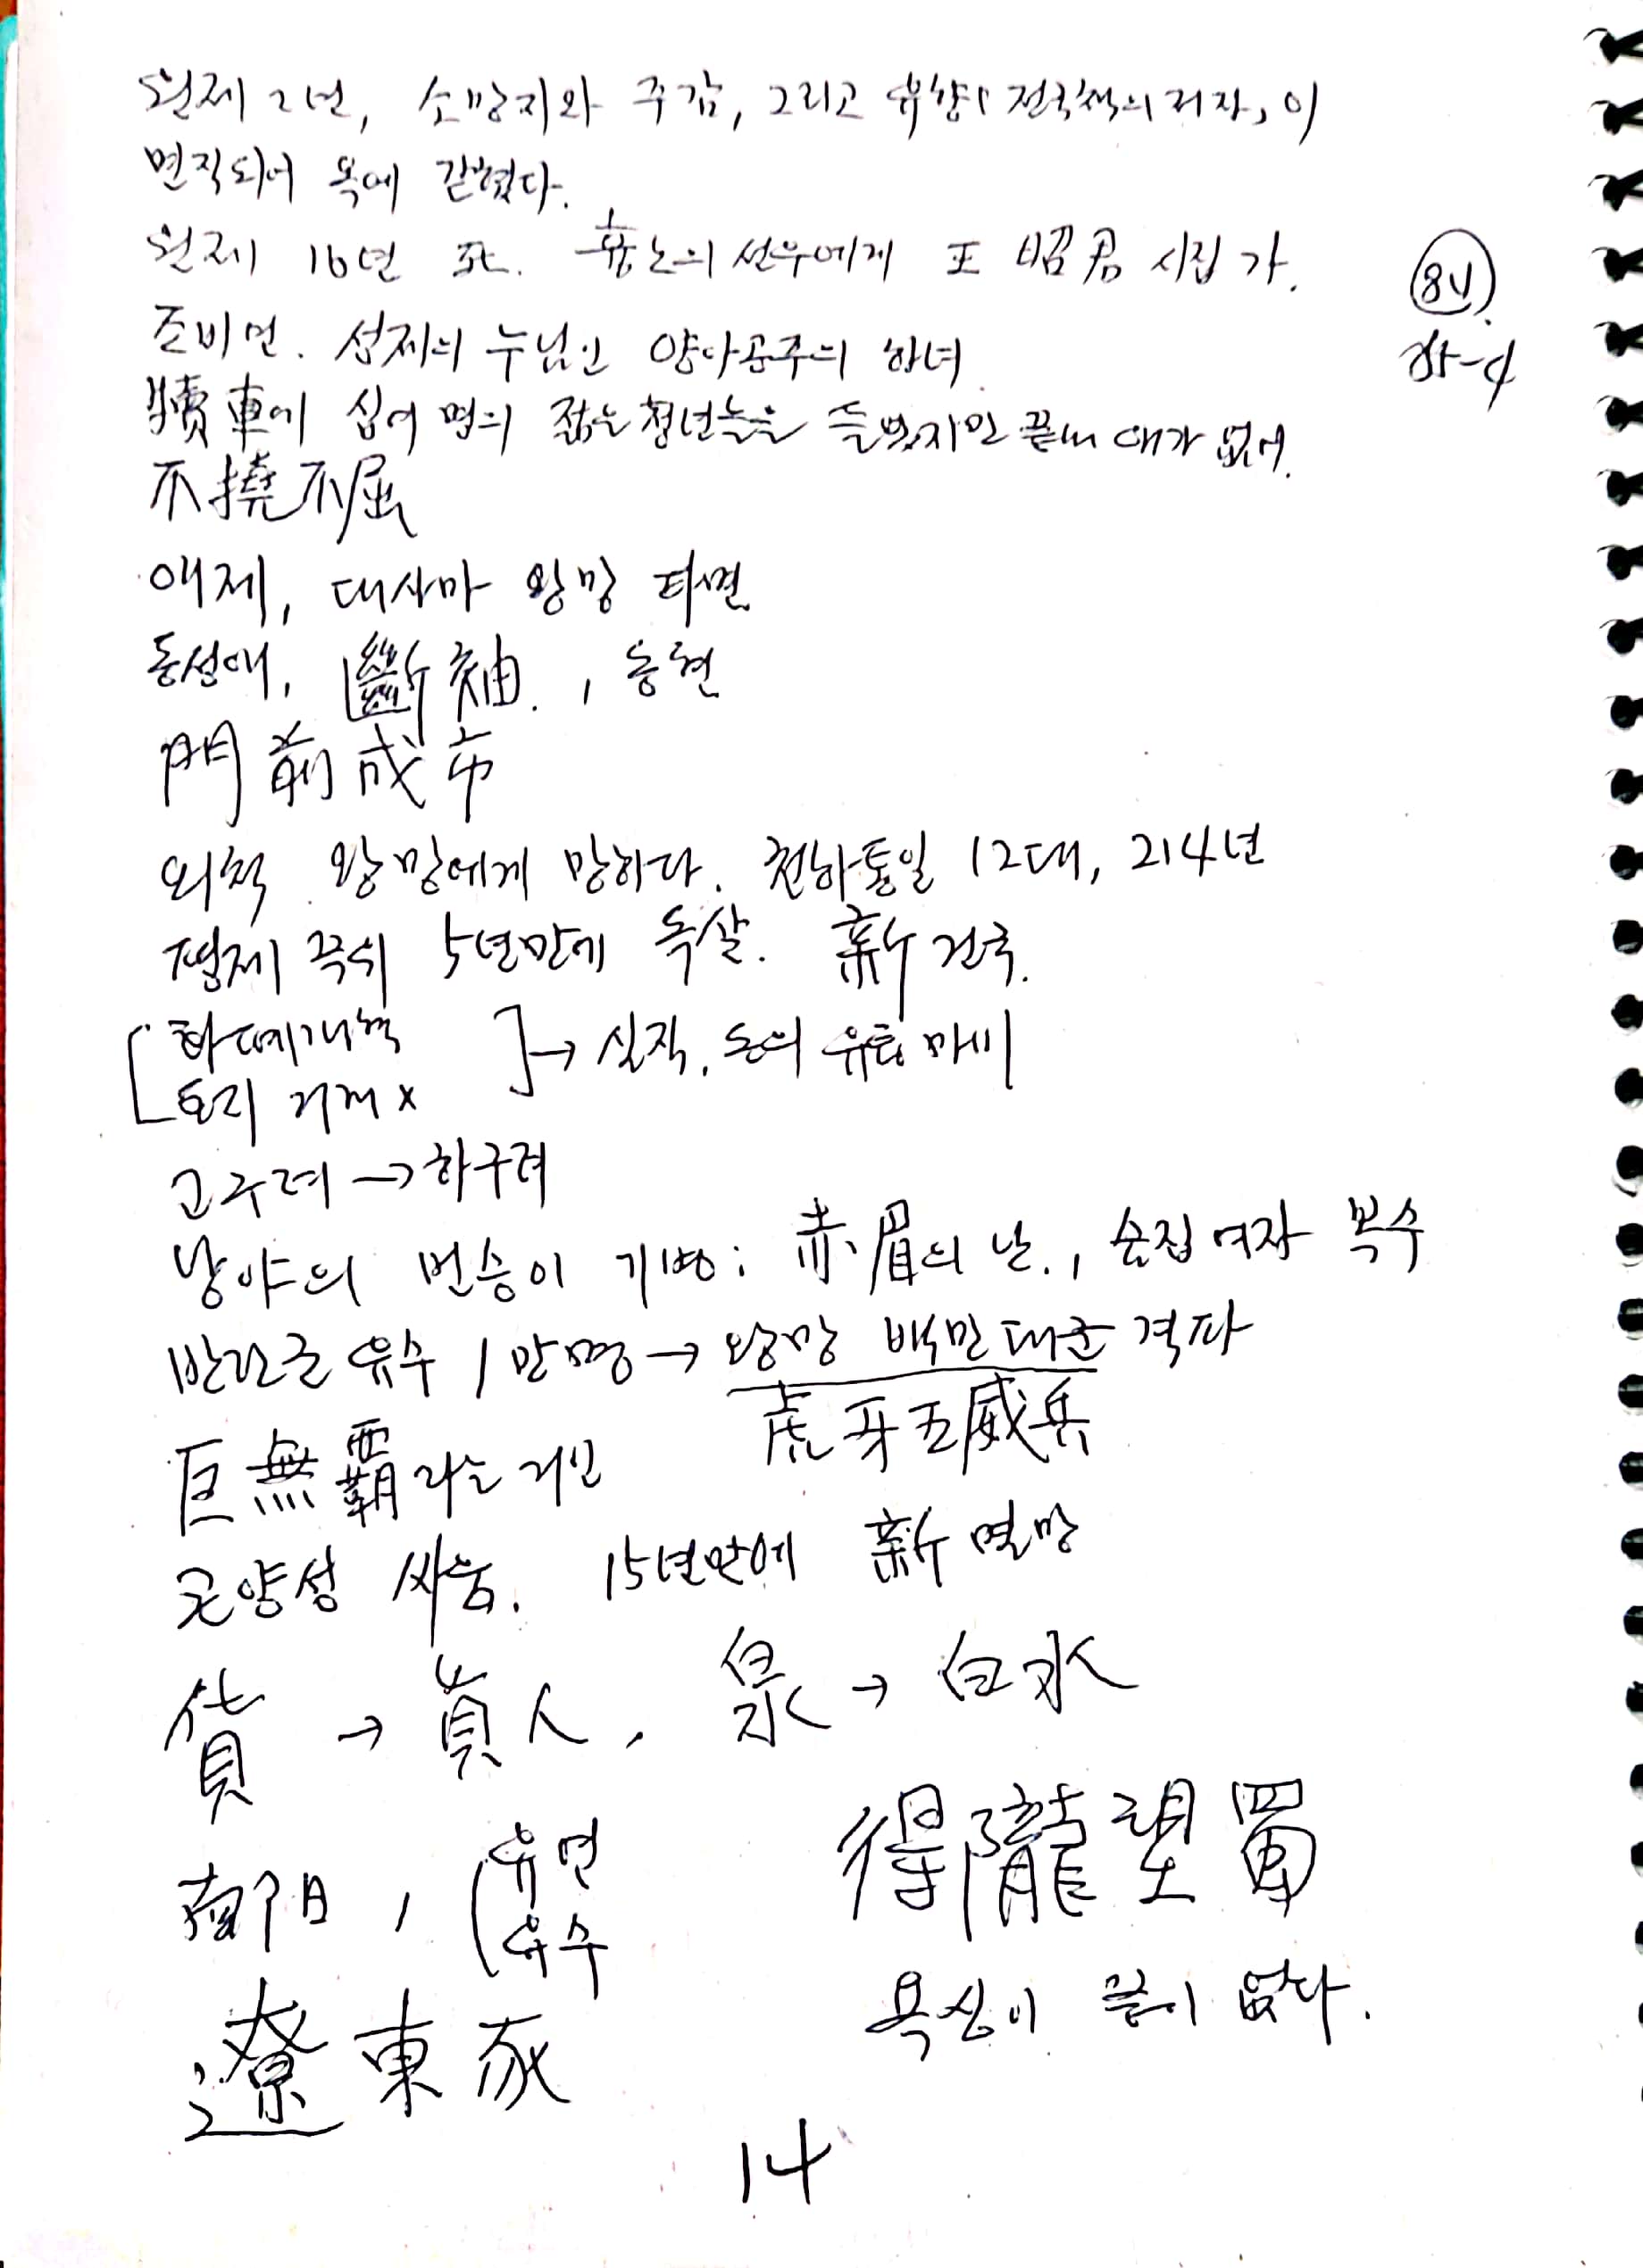 원제 2년, 소망지와 주감, 그리고 유향(전국책의 저자)이
면직되어 옥에 갇혔다.
원제 16년 死. 흉노의 선우에게 王昭君 시집 가.
조비연. 성제의 누님인 양아공주의 하녀
犢車에 십여 명의 젊은 청년들을 들였지만 끝내 애가 없어.
不撓不屈
애제, 대사마 왕망 파면
동성애, 斷袖., 동현
門前成市
외척 왕망에게 망하다. 천하통일 12대, 214년
평제 즉위 5년만에 독살. 新 건국.
화폐개혁
토지 거래 x
→ 실직, 돈의 유통 마비
고구려 → 하구려
낭야의 번숭이 기병: 赤眉의 난., 술집 여자 복수
반란군 유수 1만명 → 왕망 백만 대군 격파
虎牙五威兵
巨無覇라는 거인
곤양성 싸움. 15년만에 新 멸망
貨 → 眞人, 泉 → 白水
南阳, 유연
유수
得隴望蜀
욕심이 끝이 없다.
遼東豕
14